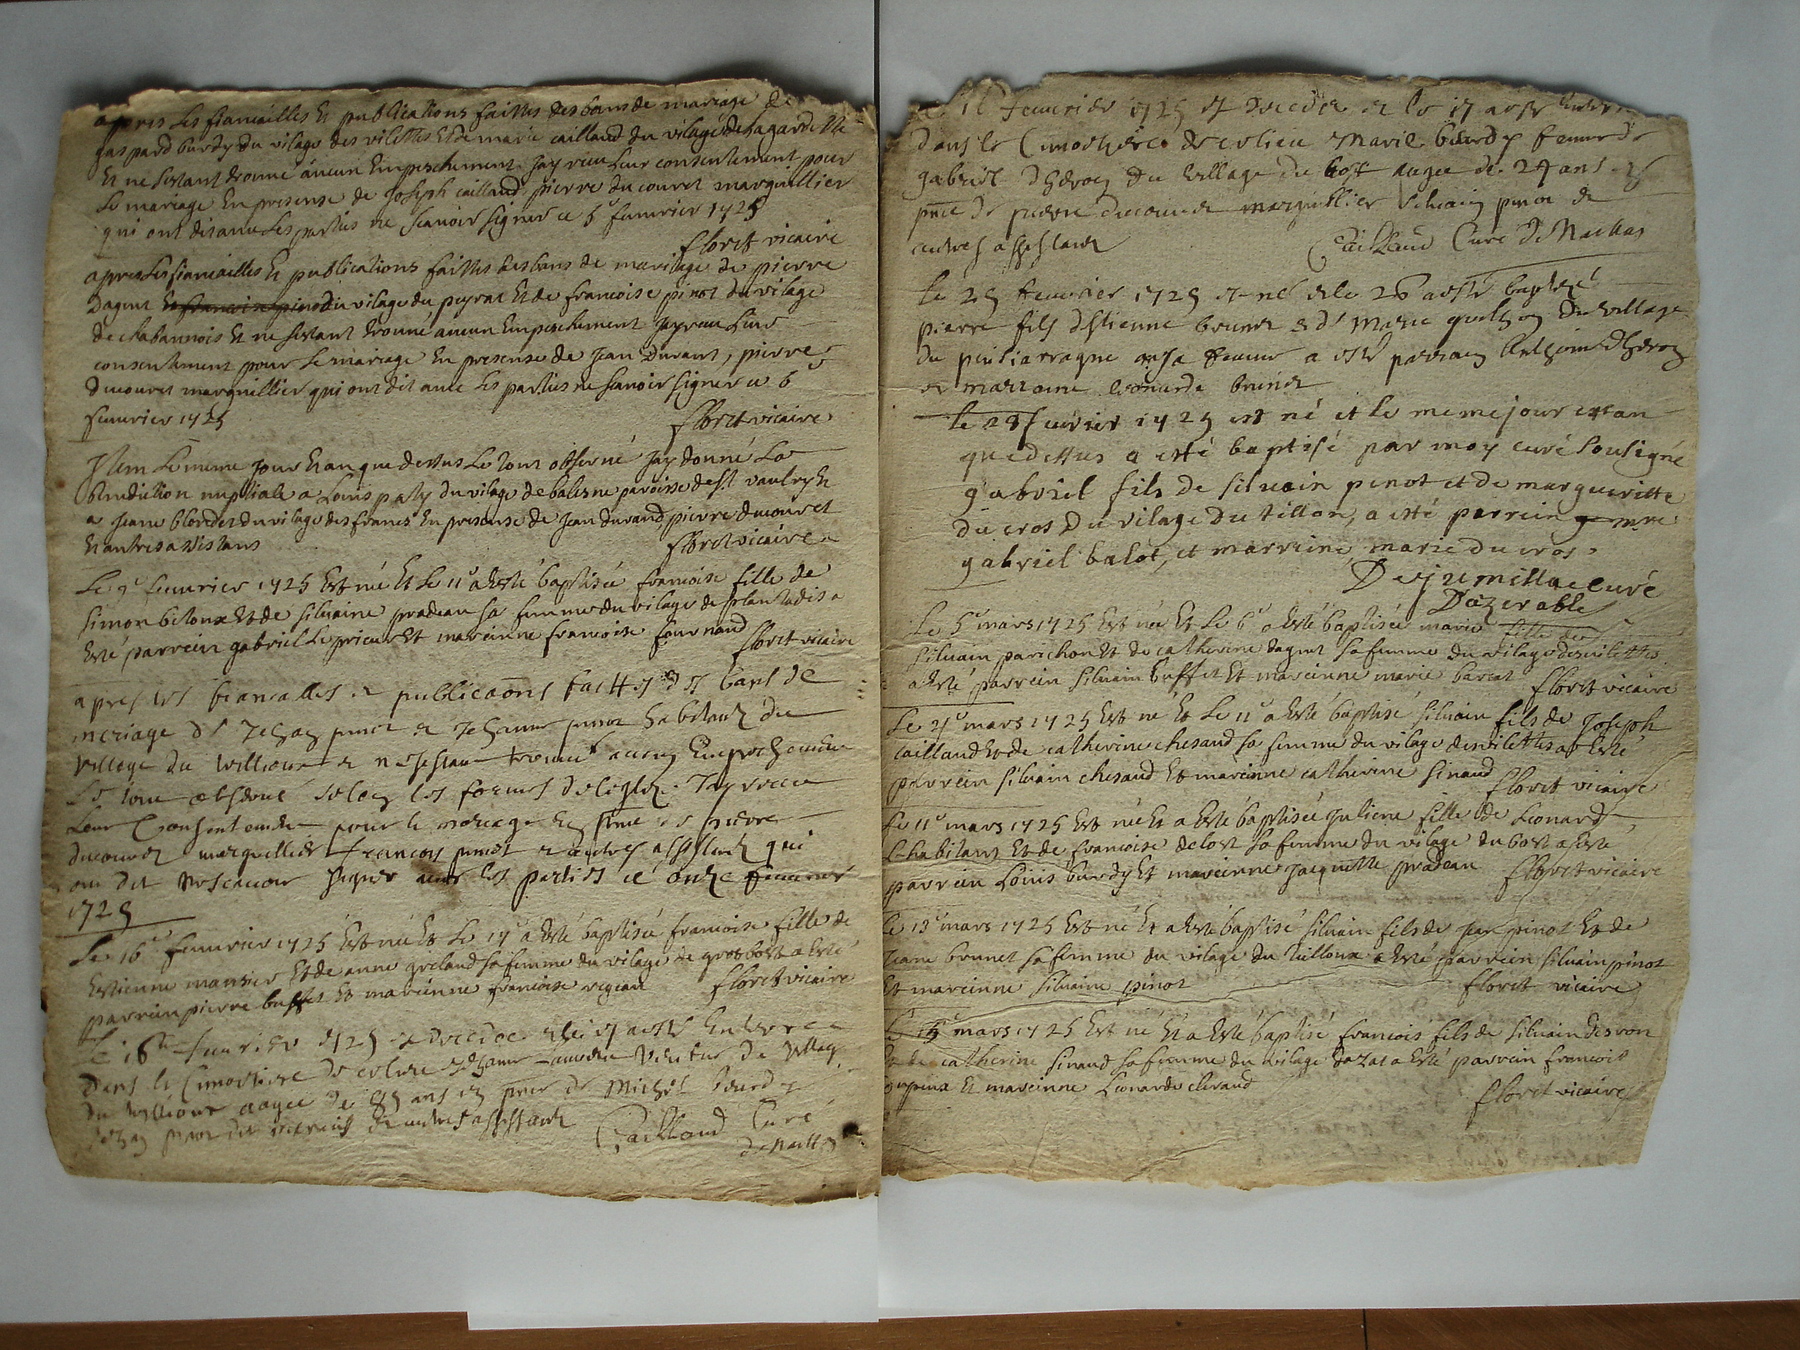 apres Les fiancailles Et publications faittes des bans de mariage de
gaspard burdy du vilage des vilettes Et de marie caillaud du vilage de lagarde
Et ne sestant trouvé aucun Empeschement Jay receu Leur consentement pour
Le mariage En presense de Joseph caillaud pierre du couret marguillier
qui ont dit avec Les parties ne scavoir signer ce 6e feuvrier 1725
floret vicaire
apres Les fiancailles Et publications faittes des bans de mariage de pierre
dagent du vilage du peyrat Et de francoise pinot du vilage
de chabannois Et ne sestant trouvé aucun Empeschement Jay receu Leur
consentement pour Le mariage En presense de Jean durant, pierre
ducouret marguillier qui ont dit avec Les parties ne scavoir signer ce 6
feuvrier 1725
floret vicaire
Item Le meme Jour Et an que dessus Le tout observé Jay donné La
benediction nuptiale a Louis paty du vilage de paroisse de st vaulry Et
a Jeanne blondet du vilage des francs En presense de Jean durand pierre ducouret
Et autres assistans
floret vicaire
Le 9e feuvrier 1725 Est née Et Le 11e a Esté baptisée francoise fille de
simon betoux Et de silvaine pradeau sa femme du vilage de plantadis a
Esté parrein gabriel Leprieur Et mareinne francoise fournaud
floret vicaire
apres les fiancalles et publicaons faittes des bans de
mariage de Jehan pinot et Jehanne pinot habitans du
village du willioux et ne sestant trouvé aucung Empechement
Le tout observé selon les formes de leglize Jay receu
Leur Consentement pour le mariage En pnce de pierre
ducouret marguillier francois pinot et autres assistants qui
ont dit ne scavoir signer avec les parties ce onze feuvrier
1725
Le 16e feuvrier 1725 Est née Et Le 17e a Esté baptisée francoise fille de
Estienne mansier Et de anne greland sa femme du vilage de grosbost a Esté
parrein pierre buffet Et mareinne francoise
floret vicaire
Le 16e feuvrier 1725 est decedée et le 17 a esté Enterrée
dans le Cimostiere de Jehanne veufve du village
du willioux aagée de ans en pnce de Michel bourdy
Jehan pinot et autres assistants
Caillaud Curé
de
Le 16 feuvrier 1725 est decedée et le 17 a esté
dans le Cimostiere de Marie bourdy femme de
gabriel dheron du village du bost aagée de 24 ans
pnce de pierre ducouret marguillier silvain pinot et
autres assistants
Caillaud Curé de
le 25 feuvrier 1725 est né et le 26 a esté baptizé
pierre fils destienne brunet et de Marie du village
du sa femme a esté parrain Anthoine dheron
et marraine Leonarde brunet
le 28 feuvrier 1725 est né et le meme jour et an
que dessus a esté baptisé par moy curé soussigné
gabriel fils de silvain pinot et de margueritte
du cros du vilage du tillou, a esté parrein
gabriel balot, et marreine marie du cros
Dejumillac curé
Dazerables
Le 5e mars 1725 Est née Et Le 6e a Esté baptisée marie fille de
silvain parichon Et de catherine dagent sa femme du vilage des vilettes
a Esté parrein silvain buffet Et mareinne marie barcat
floret vicaire
Le mars 1725 Est né Et Le 11e a Esté baptisé silvain fils de Joseph
caillaud Et de catherine chezaud sa femme du vilage des vilettes a Esté
parrein silvain chezaud Et mareinne catherine sinaud
floret vicaire
Le 11e mars 1725 Est née Et a Esté baptisée Juliene fille de Leonard
Lhabitant Et de francoise delost sa femme du vilage du bost a Esté
parrein Louis burdy Et mareinne Jacquette pradeau
floret vicaire
Le 13e mars 1725 Est né Et a Esté baptisé silvain fils de Jean pinot Et de
Jeane brunet sa femme du vilage du tilloux a Esté parrein silvain pinot
Et mareinne silvaine pinot
floret vicaire
Le mars 1725 Est né Et a Esté baptisé francois fils de silvain
Et de catherine sinaud sa femme du vilage dazat a Esté parrein francois
Et mareinne Leonarde
floret vicaire